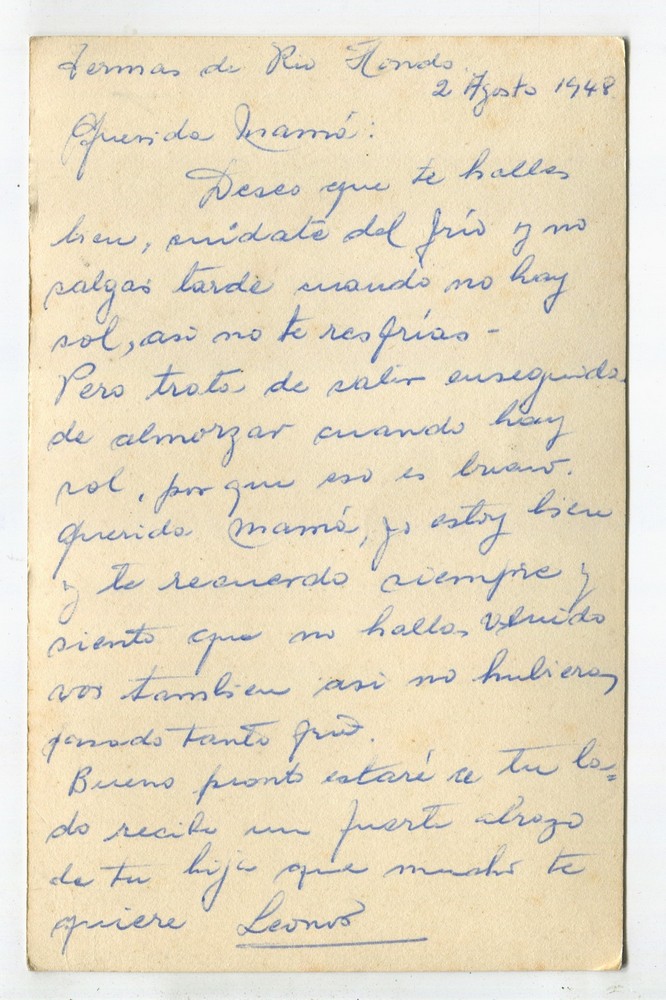 Termas de Rio Hondo
2 Agosto 1948.
Querida Mamá:
Deseo que te halles
bien, cuídate del frío y no
salgas tarde cuando no hay
sol, asi no te resfrías -
Pero trata de salir enseguida
de almorzar cuando hay
sol, por que eso es bueno.
Querida Mamá, yo estoy bien
y te recuerdo siempre y
siento que no hallas venido
vos tambien asi no hubieras
pasado tanto frío.
Bueno pronto estaré a tu la=
do recibe un fuerte abrazo
de tu hija que mucho te
quiere Leonor